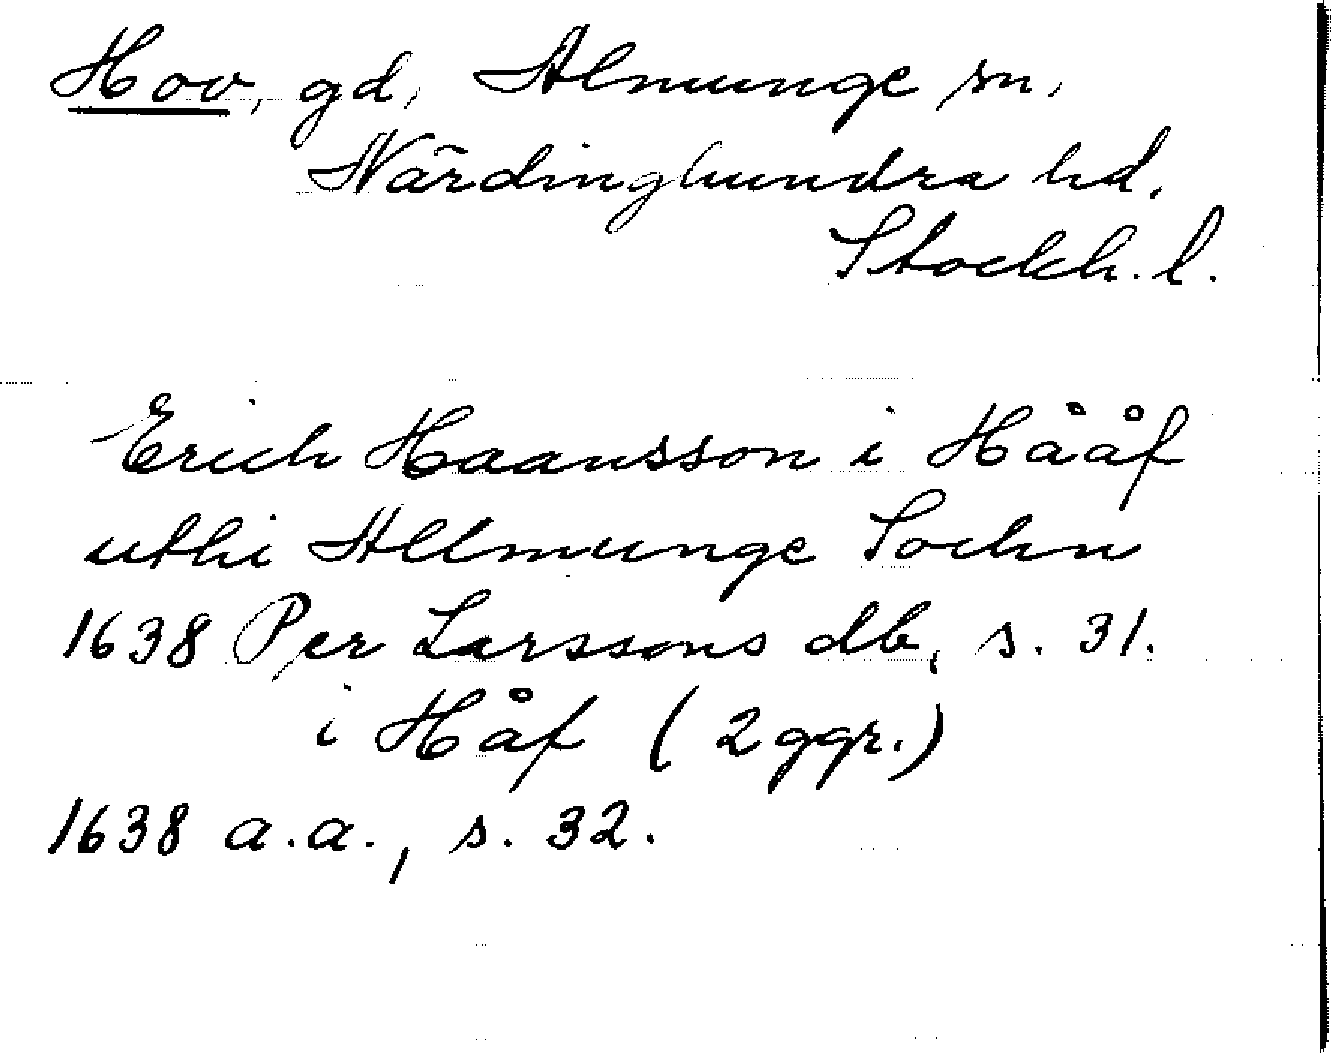 Hov, gd, Almunge sn,
Närdinghundra hd.
Stockh. l.
Erich Haansson i Hååf
uthi Allmunge Sochn
1638 Per Larssons db, s. 31.
i Håf (2 ggr.)
1638 a.a., s. 32.